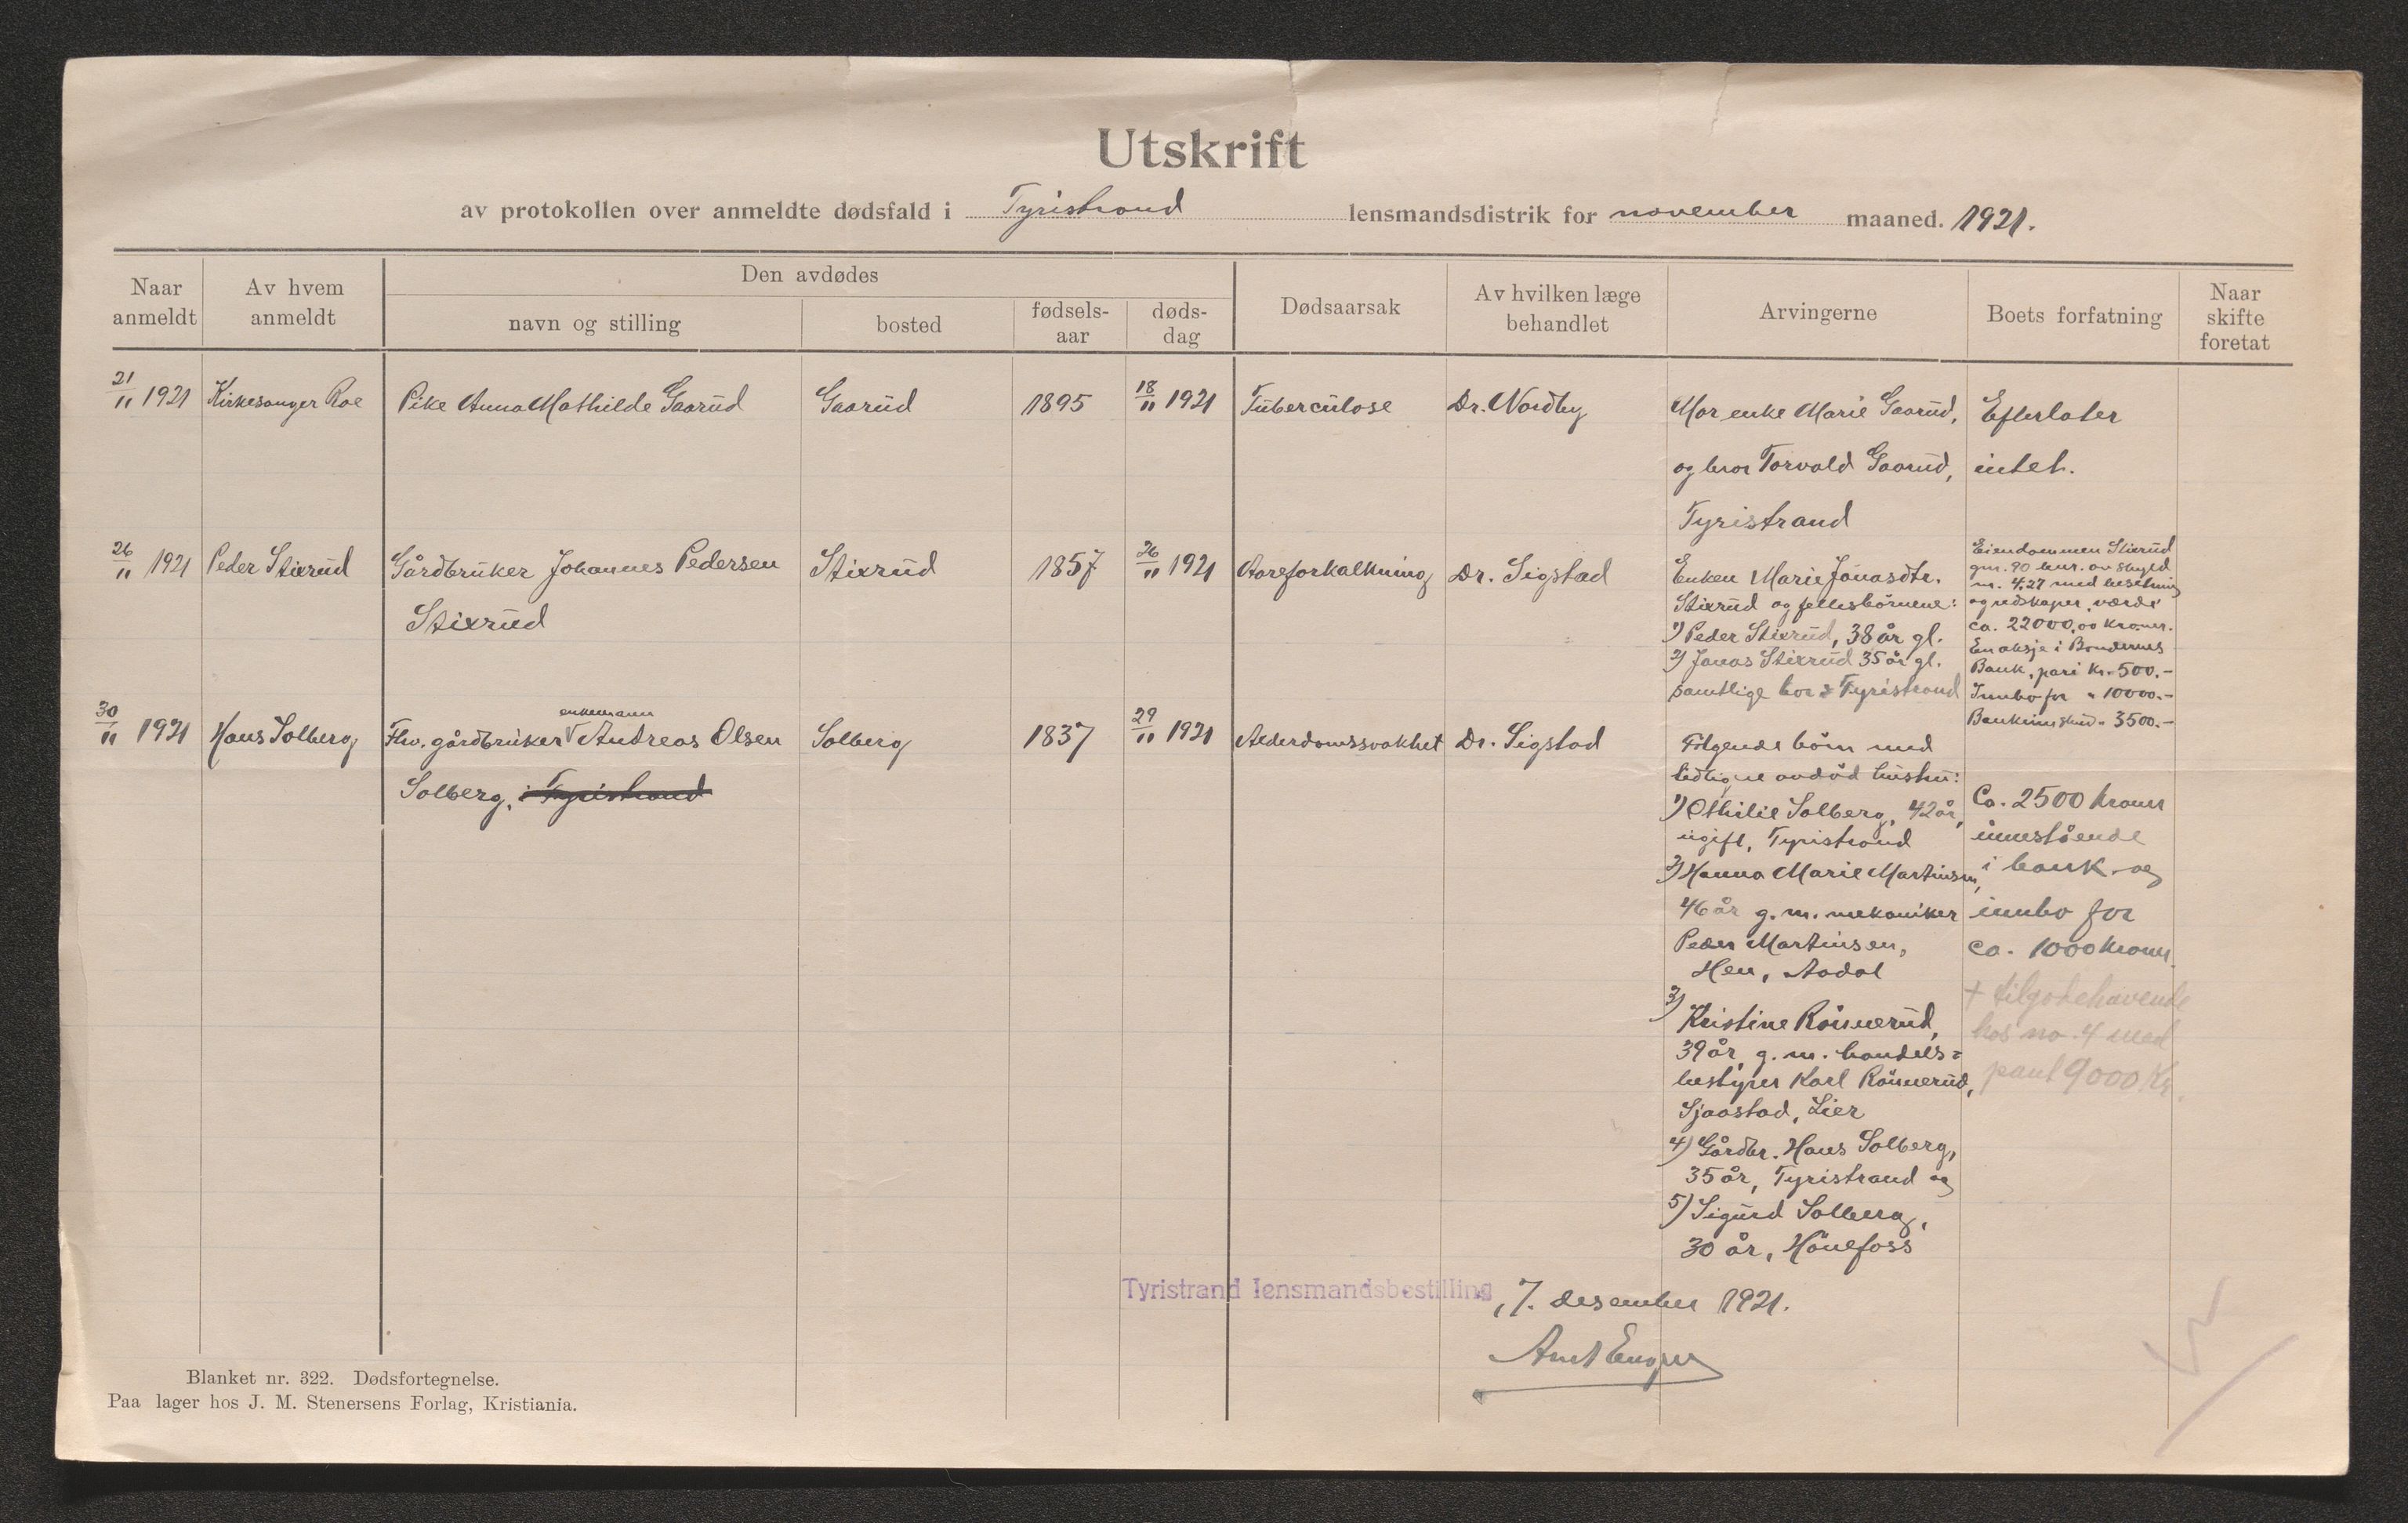 Utskrift
av protokollen over anmeldte dødsfald i Tyristrand lensmandsdistrik for november maaned. 1921.
Naar anmeldt
Av hvem anmeldt
Den avdødes
navn og stilling
bosted
fødsels-aar
døds-dag
Dødsaarsak
Av hvilken læge behandlet
Arvingerne
Boets forfatning
Naar skifte foretat
21/11 1921
Kirkesanger Roe
Pike Anna Mathilde Gaarud
Gaarud
1895
18/11 1921
Tuberculose
Dr. Nordby
Mor enke Marie Gaarud,
og bror Torvald Gaarud,
Tyristrand
Efterlater
intet.
26/11 1921
Peder Stixrud
Gårdbruker Johannes Pedersen
Stixrud
Stixrud
1857
26/11 1921
Aareforkalkning
Dr. Sigstad
Enken Marie Jonasdtr.
Stixrud og fellesbörnene:
1) Peder Stixrud, 38 år gl.
2) Jonas Stixrud 35 år gl.
samtlige bor i Tyristrand
Eiendommen Stixrud
gnr. 90 bnr. av skyld
m. 4.27 med besetning
og redskaper, værdi
ca. 22000,00 kroner.
En aksje i Bøndernes
Bank, pari kr. 500.-
Innbo for " 10000.-
Bankinnskud " 3500.-
30/11 1921
Hans Solberg
Fhv. gårdbruker enkemann Andreas Olsen
Solberg, i Tyristrand
Solberg
1837
29/11 1921
Alderdomssvakhet
Dr. Sigstad
Følgende börn med
tidligere avdöd hustru:
1) Othilie Solberg, 42 år,
ugift, Tyristrand
2) Hanna Marie Martinsen,
46 år g. m. mekaniker
Peder Martinsen,
Hen, Aadal
3)
Kristine Rönnerud,
39 år, g. m. handels=
bestyrer Karl Rönnerud,
Sjaastad, Lier
4) Gårdbr. Hans Solberg,
35 år, Tyristrand og
5) Sigurd Solberg,
30 år, Hönefoss
Ca. 2500 kroner
innestående
i bank og
innbo for
ca. 1000 kroner
+ tilgodehavende
hos no. 4 med
pant 9000 Kr.
Tyristrand lensmandsbestilling, 7. desember 1921.
Blanket nr. 322. Dødsfortegnelse.
Paa lager hos J. M. Stenersens Forlag, Kristiania.